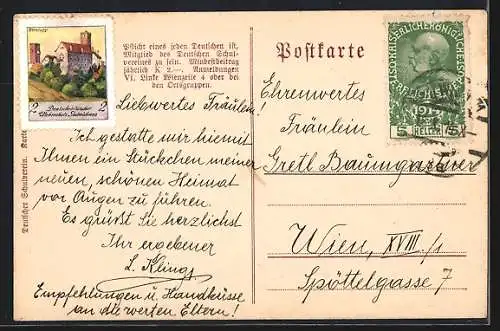 Pflicht eines jeden Deutschen ist,
Mitglied des Deutschen Schul-
vereines zu sein. Mindestbeitrag
jährlich K 2.—. Anmeldungen
VI. Linke Wienzeile 4 oder bei
den Ortsgruppen.
2 2
Deutscher Schulverein. Karte
Liebwertes Fräulein!
Ich gestatte mir hiemit
Ihnen ein Stückchen meiner
neuen, schönen Heimat
vor Augen zu führen.
Es grüßt Sie herzlichst
Ihr ergebener
L. Kling
Empfehlungen u. Handküsse
an die werten Eltern!
Postkarte
5 HELLER 5
Ehrenwertes
Fräulein
Gretl Baumgartner
Wien, XVIII/1
Spöttelgasse 7